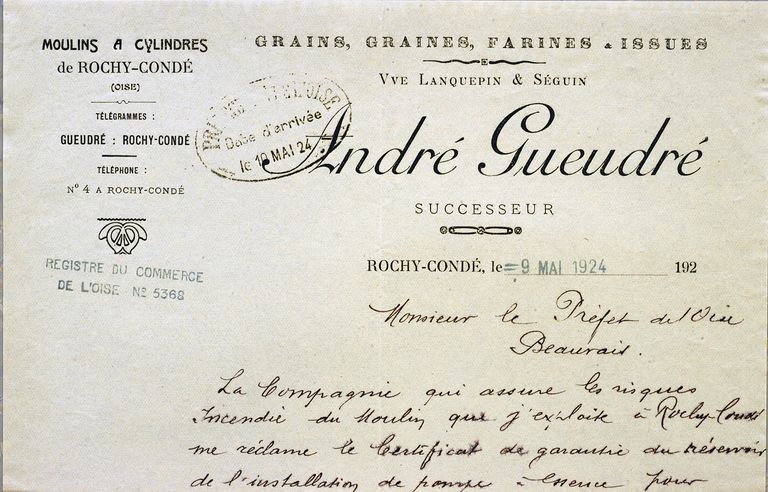 MOULINS A CYLINDRES
de ROCHY-CONDÉ
(OISE)
TÉLÉGRAMMES :
GUEUDRÉ : ROCHY-CONDÉ
TÉLÉPHONE :
Nº 4 A ROCHY-CONDÉ
REGISTRE DU COMMERCE
DE L'OISE Nº 5368
GRAINS, GRAINES, FARINES & ISSUES
VVE LANQUEPIN & SÉGUIN
L'OISE
Date d'arrivée
le 10 MAI 24
André Gueudré
SUCCESSEUR
ROCHY-CONDÉ, le = 9 MAI 1924 192
Monsieur le Préfet de l'Oise
Beauvais.
La Compagnie qui assure les risques
Incendie du Moulin que j'exploite à Rochy-Condé
me réclame le Certificat de garantie du réservoir
de l'installation de pompe à essence pour